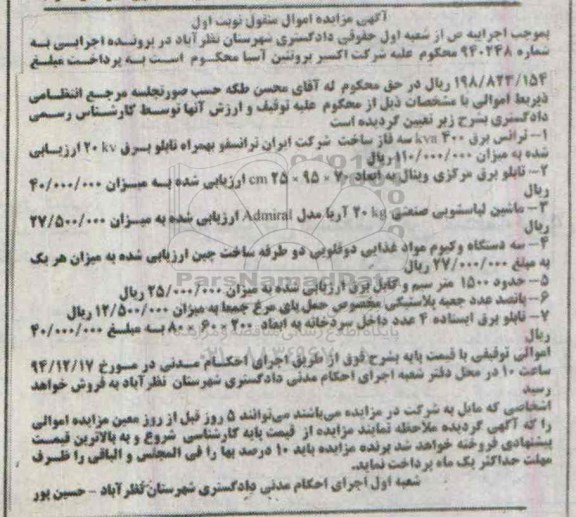 آگهی مزایده اموال منقول نوبت اول
بموجب اجراییه ص از شعبه اول حقوقی دادگستری شهرستان نظرآباد در پرونده اجرایی به
شماره ۹۴۰۲۴۸ محکوم علیه شرکت اکسیر پروتئین آسیا محکوم است به پرداخت مبلغ
۱۹۸/۸۲۳/۱۵۴ ریال در حق محکوم له آقای محسن طکه حسب صورتجلسه مرجع انتظامی
ذیربط اموالی با مشخصات ذیل از محکوم علیه توقیف و ارزش آنها توسط کارشناس رسمی
دادگستری بشرح زیر تعیین گردیده است
۱- ترانس برق ۴۰۰ kva سه فاز ساخت شرکت ایران ترانسفو بهمراه تابلو برق ۲۰ kv ارزیابی
شده به میزان ۱۱۰/۰۰۰/۰۰۰ ریال
۲- تابلو برق مرکزی ویتال به ابعاد ۷۰ × ۹۵ × ۲۵ cm ارزیابی شده به میزان ۴۰/۰۰۰/۰۰۰
ریال
۳- ماشین لباسشویی صنعتی ۲۰ kg آریا مدل Admiral ارزیابی شده به میزان ۲۷/۵۰۰/۰۰۰
ریال
۴- سه دستگاه وکیوم مواد غذایی دوقلویی دو طرفه ساخت چین ارزیابی شده به میزان هر یک
به مبلغ ۲۷/۰۰۰/۰۰۰ ریال
ParsNamadData
۵- حدود ۱۵۰۰ متر سیم و کابل برق ارزیابی شده به میزان ۲۵/۰۰۰/۰۰۰ ریال
۶- پانصد عدد جعبه پلاستیکی مخصوص حمل پای مرغ جمعا به میزان ۱۲/۵۰۰/۰۰۰ ریال
۷- تابلو برق ایستاده ۴ عدد داخل سردخانه به ابعاد ۲۰۰ × ۶۰ × ۸۰ به مبلغ ۴۰/۰۰۰/۰۰۰
ریال
اموالی توقیفی با قیمت پایه بشرح فوق از طریق اجرای احکام مدنی در مورخ ۹۴/۱۲/۱۷
ساعت ۱۰ در محل دفتر شعبه اجرای احکام مدنی دادگستری شهرستان نظرآباد به فروش خواهد
رسید
اشخاصی که مایل به شرکت در مزایده می‌باشند می‌توانند ۵ روز قبل از روز معین مزایده اموالی
را که آگهی گردیده ملاحظه نمایند مزایده از قیمت پایه کارشناسی شروع و به بالاترین قیمت
پیشنهادی فروخته خواهد شد برنده مزایده باید ۱۰ درصد بها را فی المجلس و الباقی را ظرف
مهلت حداکثر یک ماه پرداخت نماید.
شعبه اول اجرای احکام مدنی دادگستری شهرستان نظرآباد - حسین پور